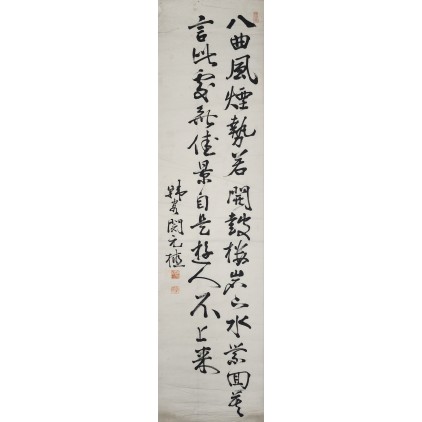 八曲風煙勢若開鼓樓岩下水縈回莫
言此處無佳景自是遊人不上來
韓客閔元植